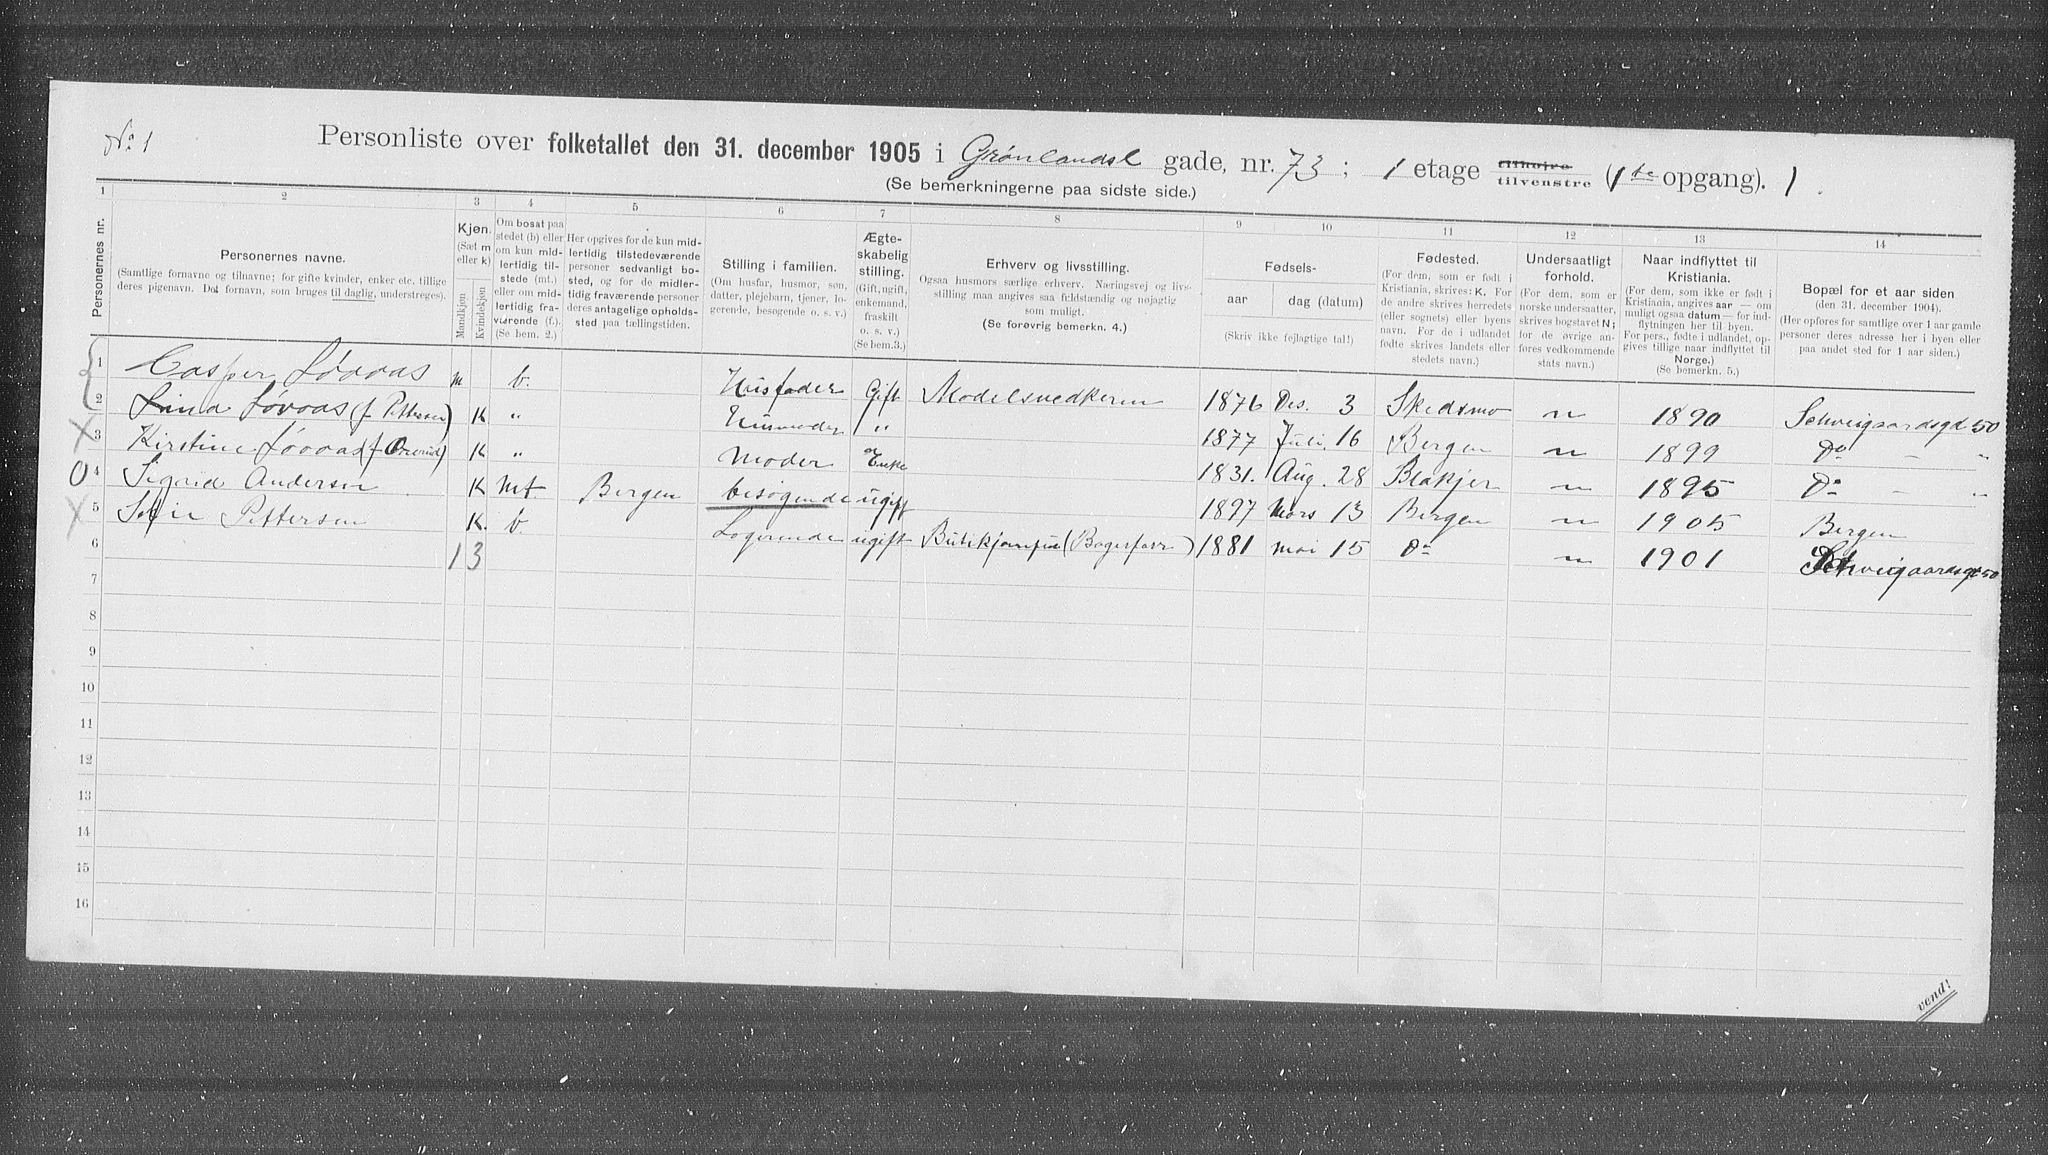 No 1
Personliste over folketallet den 31. december 1905 i Grønlandsl gade, nr. 73; 1 etage tilhøjre tilvenstre (1ste opgang). 1.
(Se bemerkningerne paa sidste side.)
1 2 3 4 5 6 7 8 9 10 11 12 13 14
Personernes nr.
Personernes navne.
(Samtlige fornavne og tilnavne; for gifte kvinder, enker etc. tillige
deres pigenavn. Det fornavn, som bruges til daglig, understreges).
Kjøn.
(Sæt m
eller k)
Mandkjøn
Kvindekjøn
Om bosat paa
stedet (b) eller
om kun mid-
lertidig til-
stede (mt.)
eller om mid-
lertidig fra-
værende (f.).
(Se bem. 2.)
Her opgives for de kun mid-
lertidig tilstedeværende
personer sedvanligt bo-
sted, og for de midler-
tidig fraværende personer
deres antagelige opholds-
sted paa tællingstiden.
Stilling i familien.
(Om husfar, husmor, søn,
datter, plejebarn, tjener, lo-
gerende, besøgende o. s. v.)
Ægte-
skabelig
stilling.
(Gift, ugift,
enkemand,
fraskilt
o. s. v.)
(Se bem. 3.)
Erhverv og livsstilling.
Ogsaa husmors særlige erhverv. Næringsvej og livs-
stilling maa angives saa fuldstændig og nøjagtig
som muligt.
(Se forøvrig bemerkn. 4.)
Fødsels-
aar dag (datum)
(Skriv ikke fejlagtige tal!)
Fødested.
(For dem, som er født i
Kristiania, skrives: K. For
de andre skrives herredets
(eller sognets) eller byens
navn. For de i udlandet
fødte skrives landets eller
stedets navn.)
Undersaatligt
forhold.
(For dem, som er
norske undersaatter,
skrives bogstavet N;
for de øvrige an-
føres vedkommende
stats navn.)
Naar indflyttet til
Kristiania.
(For dem, som ikke er født i
Kristiania, angives aar — om
muligt ogsaa datum — for ind-
flytningen her til byen.
For pers., fødte i udlandet, op-
gives tillige naar indflyttet til
Norge.)
(Se bemerkn. 5.)
Bopæl for et aar siden
(den 31. december 1904).
(Her opføres for samtlige over 1 aar gamle
personer deres adresse her i byen eller
paa andet sted for 1 aar siden.)
1 Casper Løvaas m b. Husfader Gift Modelsnedkeren 1876 Des. 3 Skedsmo n 1890 Schweigaardsgd 50
2 Lina Løvaas (f Pettersen) K " Husmoder " 1877 Juli 16 Bergen n 1899 Do — "
3 Kirstine Løvaas K " Moder Enke 1831. Aug. 28 Blakjer n 1895 Do — "
4 Sigrid Andersen K mt. Bergen besøgende ugift 1897 Mars 13 Bergen n 1905 Bergen
5 Sofie Pettersen K. b. Logerende ugift 1881 mai 15 Do n 1901 Schweigaardsgd 50
6 13
7
8
9
10
11
12
13
14
15
16
vend!